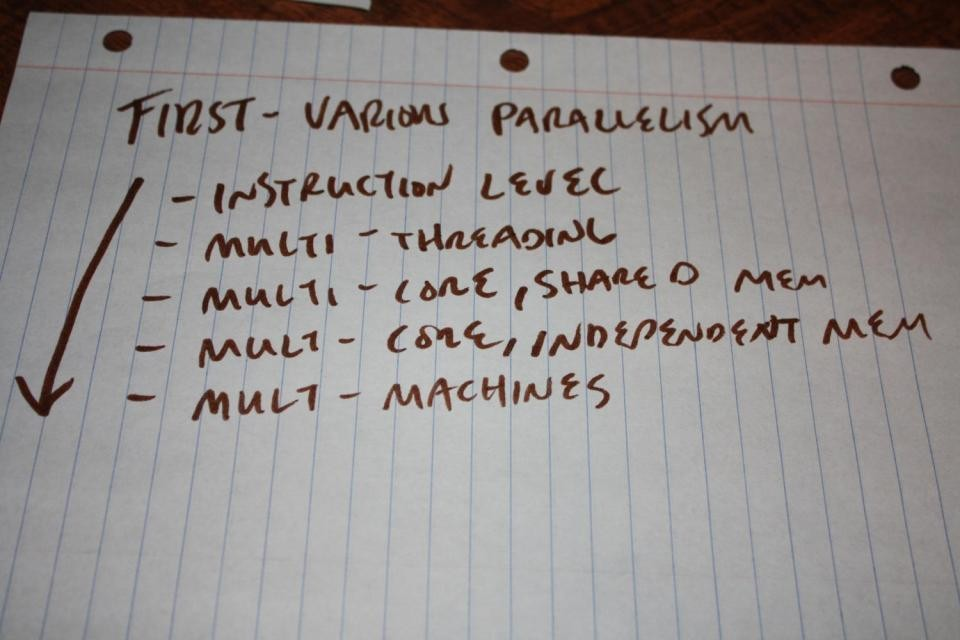 FIRST - VARIOUS PARALLELISM
- INSTRUCTION LEVEL
- MULTI - THREADING
- MULTI - CORE, SHARED MEM
- MULT - CORE, INDEPENDENT MEM
- MULT - MACHINES